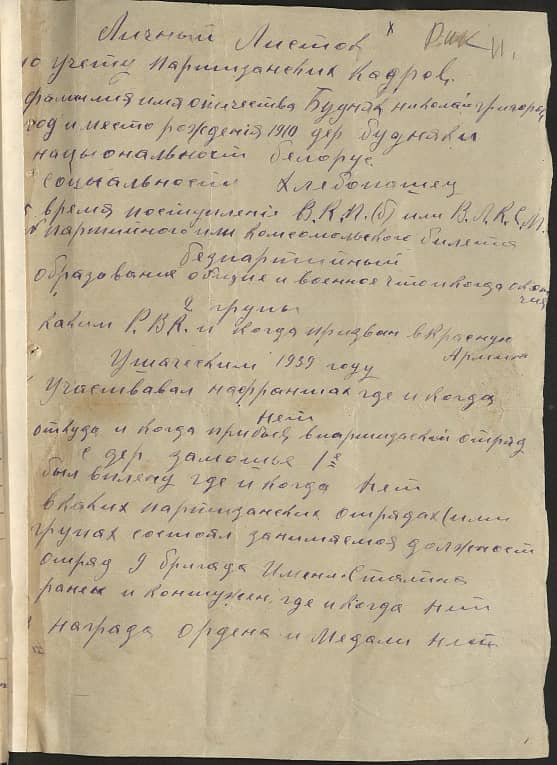 Личный Листок х
по учету партизанских кадров.
фамилия имя отичества Будняк николай григорев
год и место рожденiя 1910 дер будняки
нацыональност белорус
социальности хлебопашец
время поступленiя В.К.П.(б) или В.Л.К.С.М.
№ партийного или комсомольского билета
безпартiйный
образование общие и военное что и когда окон
чил
2 групы
каким Р.В.К. и когда призван в красную
Армию
Ушаческим 1939 году
участвавал нафронтах где и когда
нет
откуда и когда прибыл в партизаский отряд
с дер замошье
был вплену где и когда нет
в каких партизанских отрядах (или
групах состоял занимаемоя должност
отряд 9 бригада Имени Сталина
ранен и контужен где и когда нет
награда ордена и Медали нет